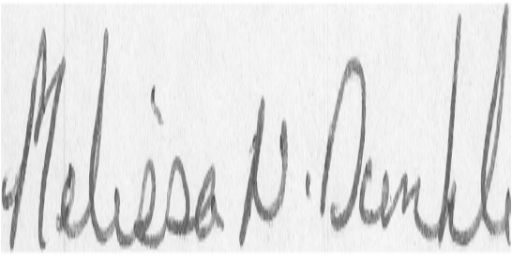 Melissa N. Dunkle